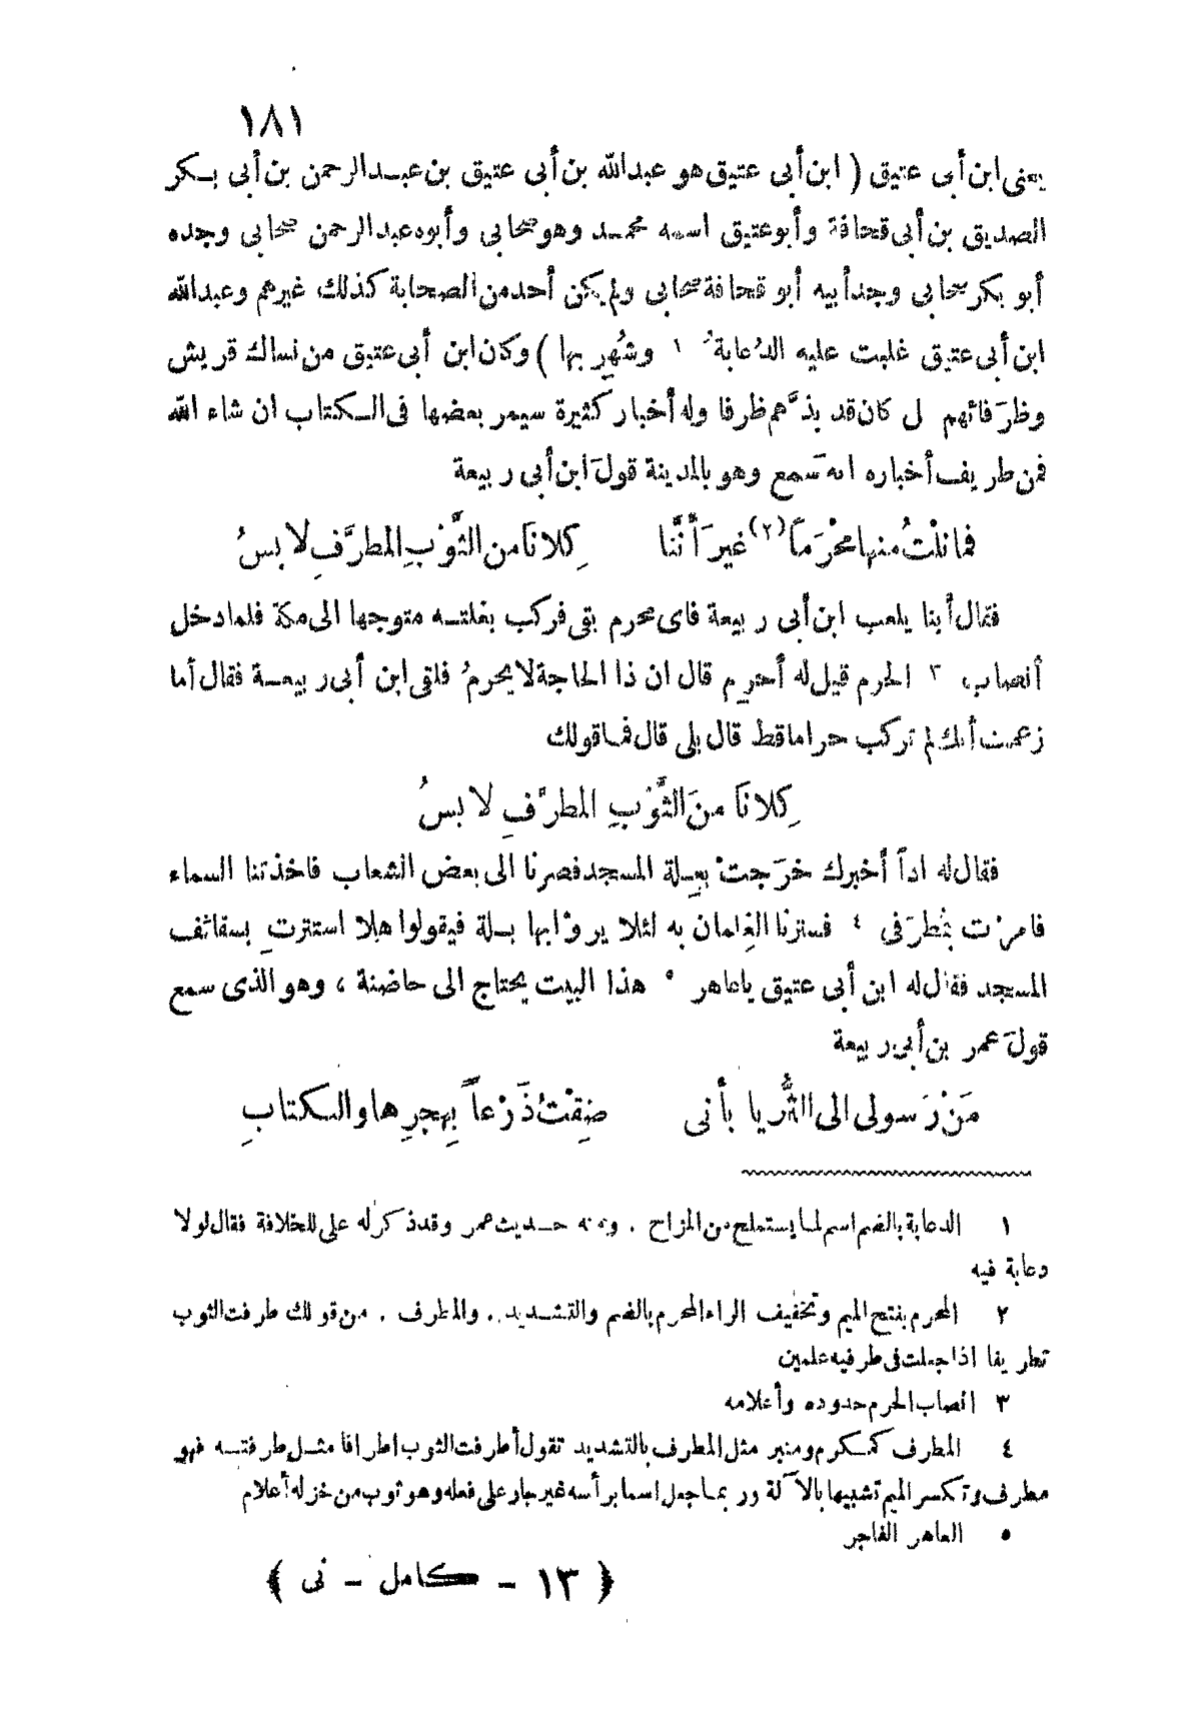 ١٨١
يعنى ابن أبى عتيق ( ابن أبى عتيق هو عبدالله بن أبى عتيق بن عبدالرحمن بن أبى بكر
الصديق بن أبى قحافة وأبو عتيق اسمه محمد وهو صحابى وأبوه عبدالرحمن صحابى وجده
أبو بكر صحابى وجد أبيه أبو قحافة صحابى ولم يكن أحد من الصحابة كذلك غيرهم وعبدالله
ابن أبى عتيق غلبت عليه الدُعابةُ ١ وشُهِر بها ) وكان ابن أبى عتيق من نساك قريش
وظرَفائهم بل كان قد بذَّهم ظرفا وله أخبار كثيرة سيمر بعضها فى الكتاب ان شاء الله
فمن طريف أخباره انه سَمع وهو بالمدينة قولَ ابن أبى ربيعة
فما نلْتُ منها محْرَماً (٢) غيرَ أنَّنا كِلانَا من الثَّوْبِ المطرَّفِ لابسُ
فقال أبنا يلعب ابن أبى ربيعة فاى محرم بقى فركب بغلته متوجها الى مكة فلما دخل
أنصاب ٣ الحرم قيل له أحرِم قال ان ذا الحاجة لا يحرمُ فلقى ابن أبى ربيعة فقال أما
زعمت أنك لم تركب حراما قط قال بلى قال فما قولك
كِلانَا منَ الثَّوْبِ المطرَّفِ لابسُ
فقال له اذاً أخبرك خرَجت بعِلة المسجد فصرنا الى بعض الشعاب فاخذتنا السماء
فامرْت بمُطرَفى ٤ فسترنا الغِلمان به لئلا يروْا بها بلة فيقولوا هلا استترتِ بسقائف
المسجد فقال له ابن أبى عتيق ياعاهر ٥ هذا البيت يحتاج الى حاضنة ، وهو الذى سمع
قولَ عمر بن أبى ربيعة
مَنْ رَسولى الى الثُّريا بأنى ضِقْتُ ذَرْعاً بِهجرِها والكتابِ
١ الدعابة بالضم اسم لما يستملح من المزاح . ومنه حديث عمر وقد ذكر له على للخلافة فقال لولا
دعابة فيه
٢ المحرم بفتح الميم وتخفيف الراء المحرم بالضم والتشديد . والمطرف . من قولك طرفت الثوب
تطريفا اذا جعلت فى طرفيه علمين
٣ انصاب الحرم حدوده وأعلامه
٤ المطرف كمكرم ومنبر مثل المطرف بالتشديد تقول أطرفت الثوب اطرافا مثل طرفته فهو
مطرف وتكسر الميم تشبيها بالآلة وربما جعل اسما برأسه غير جار على فعله وهو ثوب من خز له أعلام
٥ العاهر الفاجر
﴿ ١٣ — كامل — نى ﴾